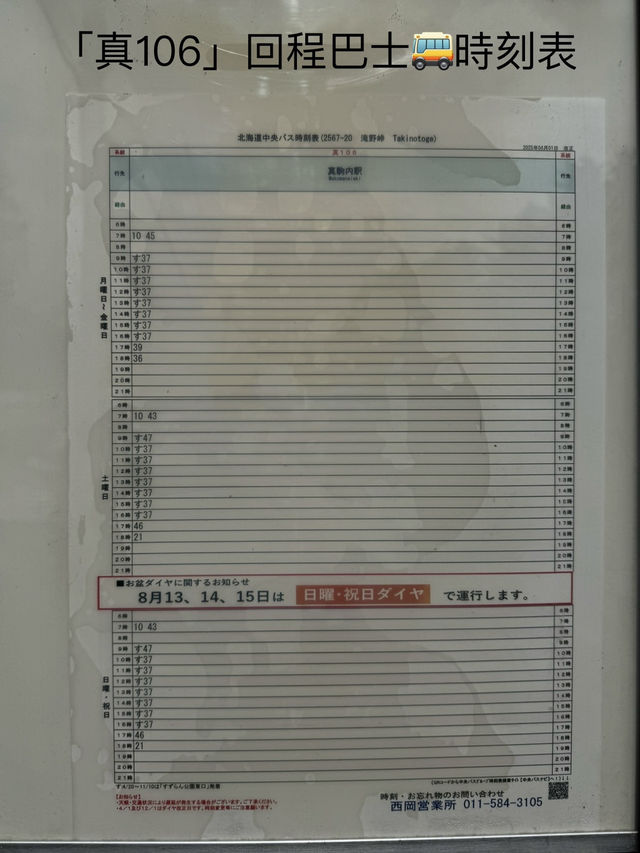 「真106」回程巴士🚌時刻表
北海道中央バス時刻表(2567-20 滝野峠 Takinotoge)
2025年04月01日 改正
系統 真106 系統
行先 真駒内駅 行先
Makomanaieki
経由 経由
月曜日~金曜日
6時 6時
7時 10 45 7時
8時 8時
9時 す37 9時
10時 す37 10時
11時 す37 11時
12時 す37 12時
13時 す37 13時
14時 す37 14時
15時 す37 15時
16時 す37 16時
17時 39 17時
18時 36 18時
19時 19時
20時 20時
21時 21時
土曜日
6時 6時
7時 10 43 7時
8時 8時
9時 す47 9時
10時 す37 10時
11時 す37 11時
12時 す37 12時
13時 す37 13時
14時 す37 14時
15時 す37 15時
16時 す37 16時
17時 46 17時
18時 21 18時
19時 19時
20時 20時
21時 21時
■お盆ダイヤに関するお知らせ
8月13、14、15日は 日曜・祝日ダイヤ で運行します。
日曜・祝日
6時 6時
7時 10 43 7時
8時 8時
9時 す47 9時
10時 す37 10時
11時 す37 11時
12時 す37 12時
13時 す37 13時
14時 す37 14時
15時 す37 15時
16時 す37 16時
17時 46 17時
18時 21 18時
19時 19時
20時 20時
21時 21時
す:4/20~11/10は「すずらん公園東口」発着
【お知らせ】
・天候・交通状況により遅延が発生する場合がございます。ご了承ください。
・4/1及び12/1はダイヤ改正日です。時刻変更等にご注意願います。
時刻・お忘れ物のお問い合わせ
西岡営業所 011-584-3105